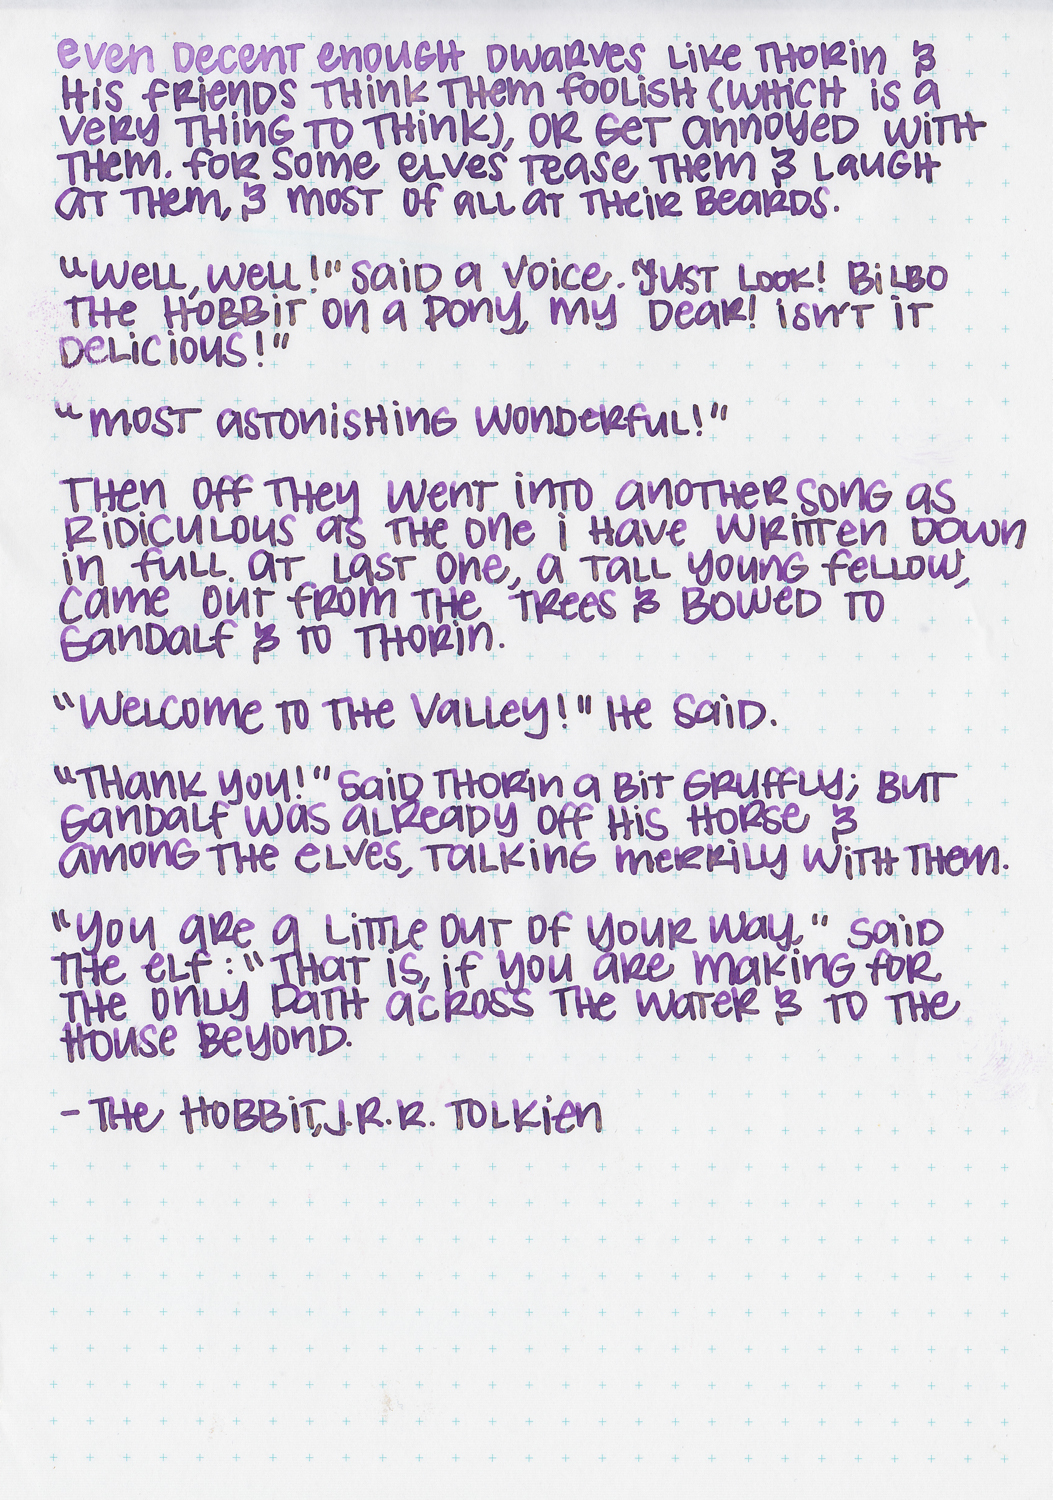 even decent enough dwarves like Thorin &
his friends think them foolish (which is a
very thing to think), or get annoyed with
them. for some elves tease them & laugh
at them, & most of all at their beards.
"Well, well!" said a voice. "Just look! Bilbo
the Hobbit on a pony, my dear! isn't it
delicious!"
"most astonishing wonderful!"
Then off they went into another song as
ridiculous as the one i have written down
in full. at last one, a tall young fellow,
came out from the trees & bowed to
Gandalf & to Thorin.
"Welcome to the valley!" he said.
"Thank you!" said Thorin a bit gruffly; but
Gandalf was already off his horse &
among the elves, talking merrily with them.
"You are a little out of your way," said
the elf: "That is, if you are making for
the only path across the water & to the
house beyond.
- The Hobbit, J.R.R. Tolkien